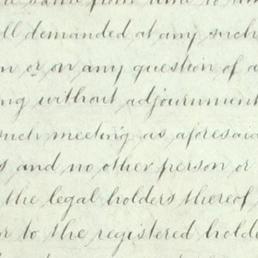 same from time to
ll demanded at any such
n or on any question of a
ng without adjournment
such meeting as aforesaid
s and no other person or
the legal holders thereof
or to the registered holde